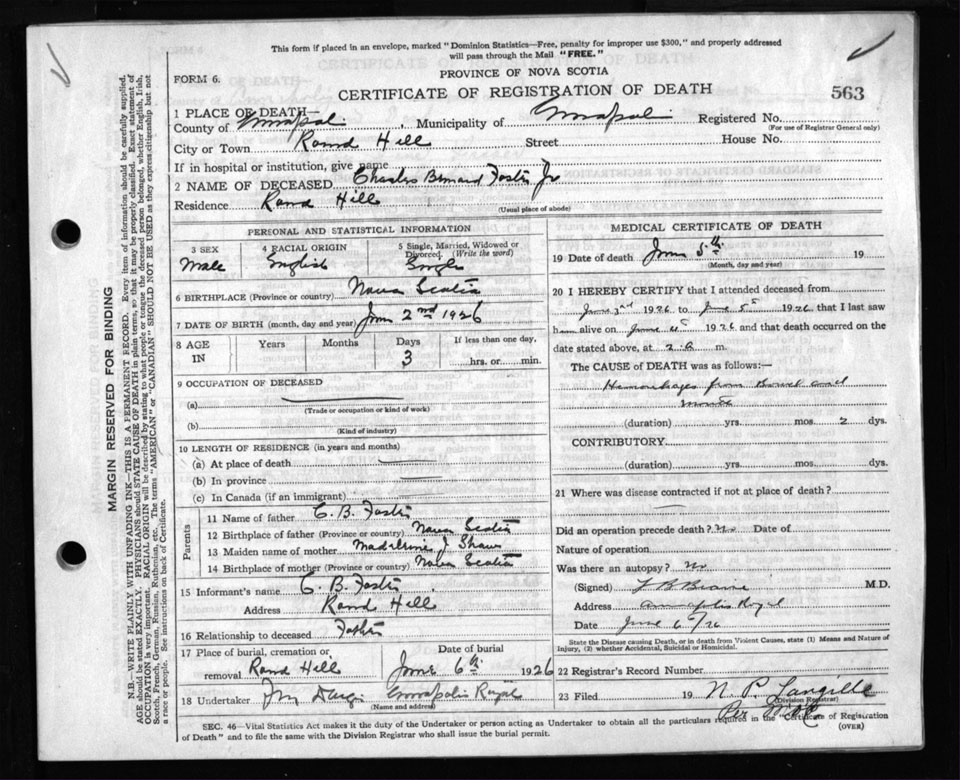 This form if placed in an envelope, marked "Dominion Statistics—Free, penalty for improper use $300," and properly addressed
will pass through the Mail "FREE."
FORM 6.
PROVINCE OF NOVA SCOTIA
CERTIFICATE OF REGISTRATION OF DEATH
563
1 PLACE OF DEATH—
County of Annapolis, Municipality of Annapolis Registered No.
(For use of Registrar General only)
City or Town Round Hill Street House No.
If in hospital or institution, give name
2 NAME OF DECEASED Charles Bernard Foster Jr
Residence Round Hill
(Usual place of abode)
PERSONAL AND STATISTICAL INFORMATION
3 SEX
Male
4 RACIAL ORIGIN
English
5 Single, Married, Widowed or
Divorced. (Write the word)
Single
6 BIRTHPLACE (Province or country) Nova Scotia
7 DATE OF BIRTH (month, day and year) June 2nd 1926
8 AGE
IN
Years Months Days If less than one day,
3 hrs. or min.
9 OCCUPATION OF DECEASED
(a)
(Trade or occupation or kind of work)
(b)
(Kind of industry)
10 LENGTH OF RESIDENCE (in years and months)
(a) At place of death
(b) In province
(c) In Canada (if an immigrant)
Parents
11 Name of father C. B. Foster
12 Birthplace of father (Province or country) Nova Scotia
13 Maiden name of mother Madeline J Shaw
14 Birthplace of mother (Province or country) Nova Scotia
15 Informant's name C. B. Foster
Address Round Hill
16 Relationship to deceased Father
17 Place of burial, cremation or
removal Round Hill
Date of burial
June 6th 1926
18 Undertaker Annapolis Royal
(Name and address)
MEDICAL CERTIFICATE OF DEATH
19 Date of death June 5th 19
(Month, day and year)
20 I HEREBY CERTIFY that I attended deceased from
June 3rd 1926 to June 5th 1926 that I last saw
him alive on June 1926 and that death occurred on
date stated above, at 2 a m.
The CAUSE of DEATH was as follows:—
Hemorrhages from Bowel and
mouth
(duration) yrs. mos. 2 dys.
CONTRIBUTORY
(duration) yrs. mos. dys.
21 Where was disease contracted if not at place of death?
Did an operation precede death? no Date of
Nature of operation
Was there an autopsy? no
(Signed) M.D.
Address Annapolis Royal
Date June 6/26
State the Disease causing Death, or in death from Violent Causes, state (1) Means and Nature of
Injury, (2) whether Accidental, Suicidal or Homicidal.
22 Registrar's Record Number
23 Filed 19 N. P. Langille
(Division Registrar)
Per
SEC. 46—Vital Statistics Act makes it the duty of the Undertaker or person acting as Undertaker to obtain all the particulars required in the "Certificate of Registration
of Death" and to file the same with the Division Registrar who shall issue the burial permit.
(OVER)
MARGIN RESERVED FOR BINDING
N.B.—WRITE PLAINLY WITH UNFADING INK—THIS IS A PERMANENT RECORD. Every item of information should be carefully supplied.
AGE should be stated EXACTLY. PHYSICIANS should STATE CAUSE OF DEATH in plain terms, so that it may be properly classified. Exact statement of
OCCUPATION is very important. RACIAL ORIGIN will be described by stating to what people or tongue the deceased person belonged, whether English, Irish,
Scotch, French, German, Russian, Ruthenian, etc. The terms "AMERICAN" or "CANADIAN" SHOULD NOT BE USED as they express citizenship but not
a race or people. See instructions on back of Certificate.